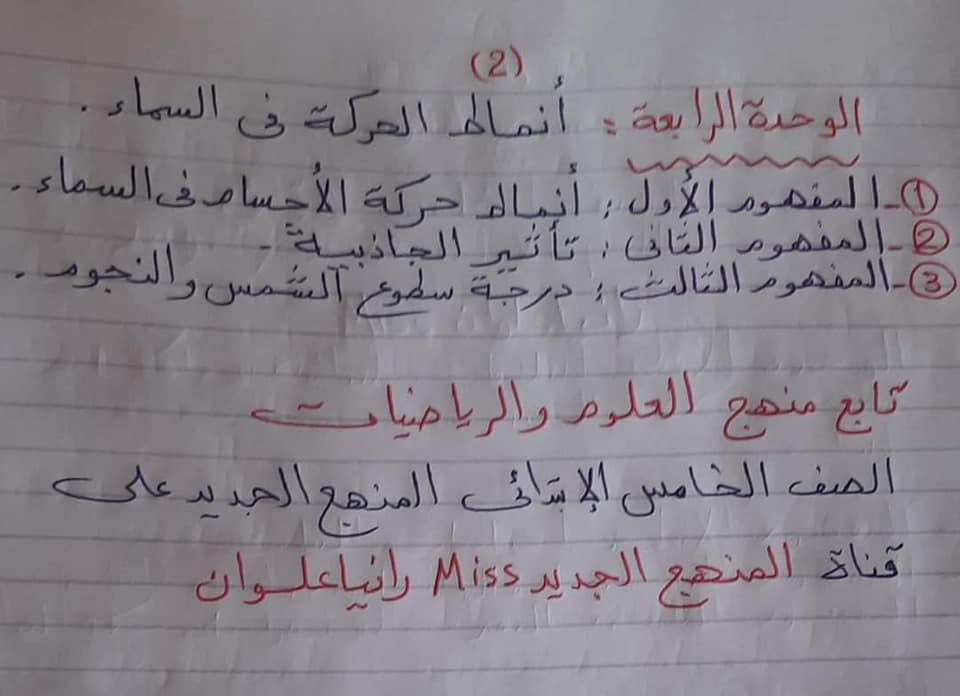 (2)
الوحدة الرابعة : أنماط الحركة فى السماء .
①- المفهوم الأول : أنماط حركة الأجسام فى السماء .
②- المفهوم الثانى : تأثير الجاذبية .
③- المفهوم الثالث : درجة سطوع الشمس والنجوم .
تابع منهج العلوم والرياضيات
الصف الخامس الإبتدائى المنهج الجديد على
قناة المنهج الجديد Miss رانيا علوان